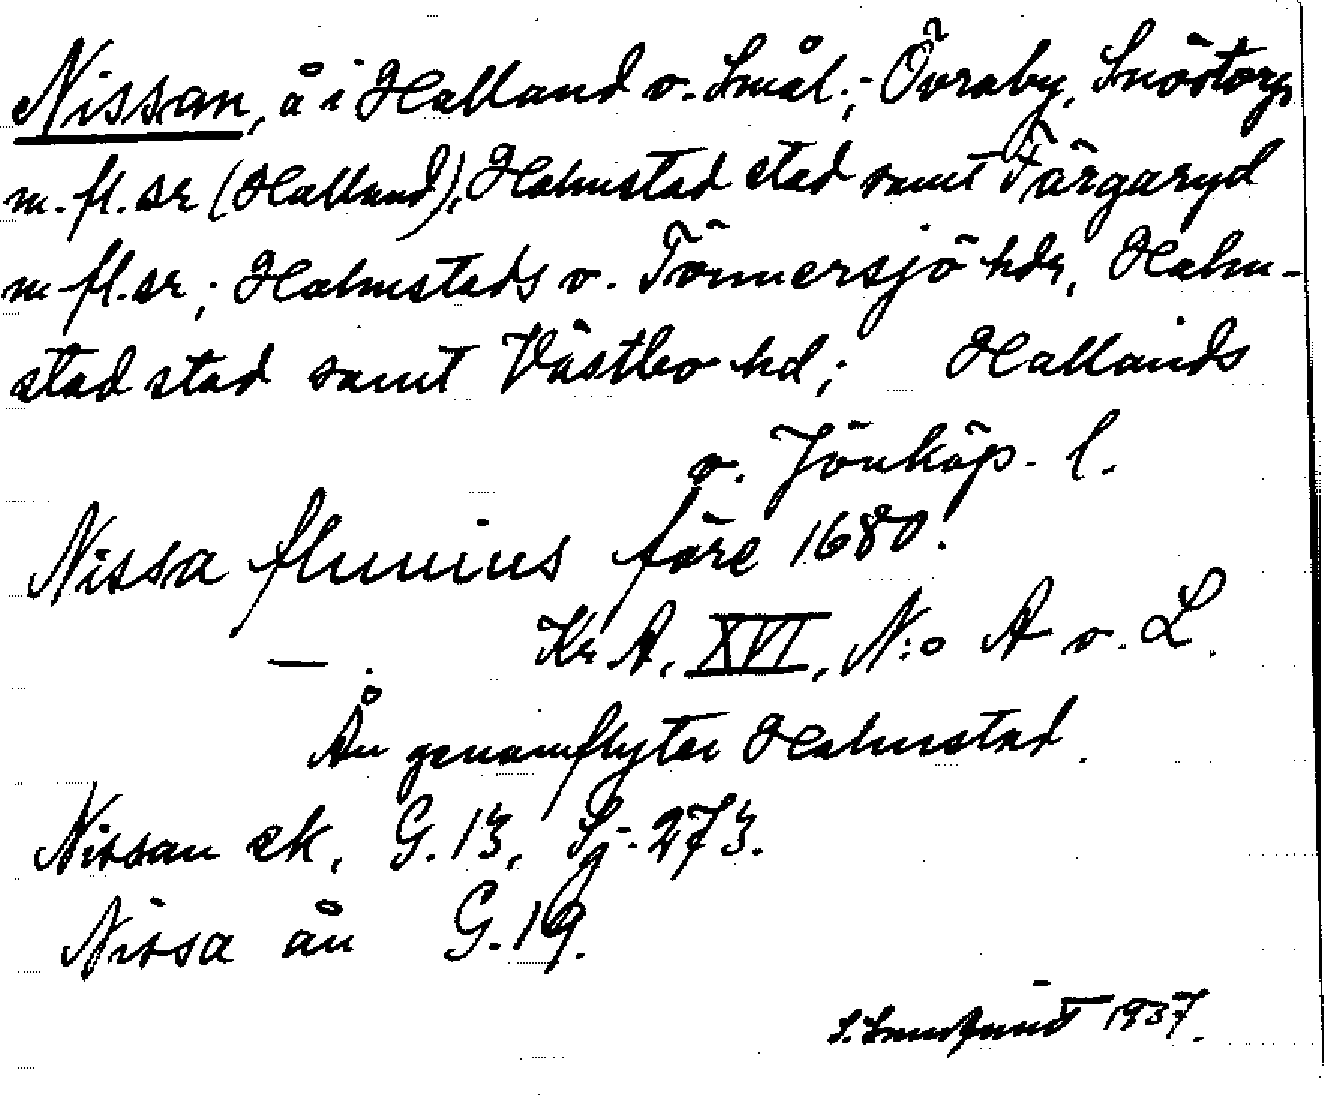 Nissan, å i Halland o. Smål.; Övraby, Snöstorp
m. fl. sr (Halland), Halmstad stad samt Färgaryd
m fl. sr; Halmstads o. Tönnersjö hdr, Halm-
stad stad samt Västbo hd; Hallands
o. Jönköp. l.
Nissa fluuius före 1680.
— . Kr A, XVI, N:o A o. L.
Ån genomflyter Halmstad.
Nissan ek, G. 13, S. 273.
Nissa ån G. 19.
1937.